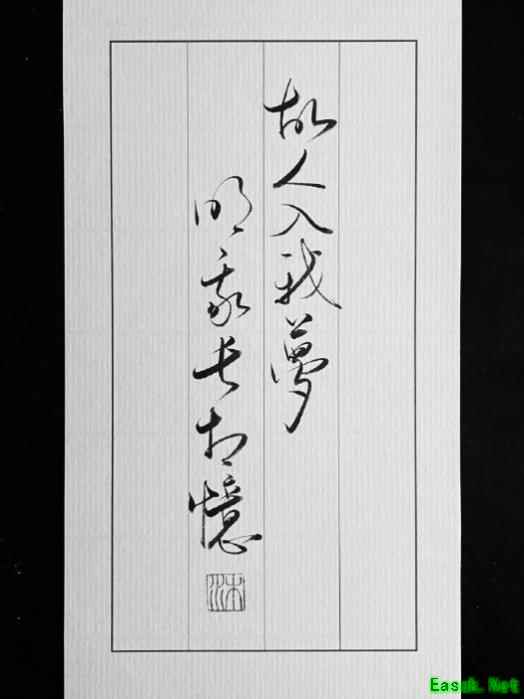 故人入我夢
明我长相憶
Easck.Net